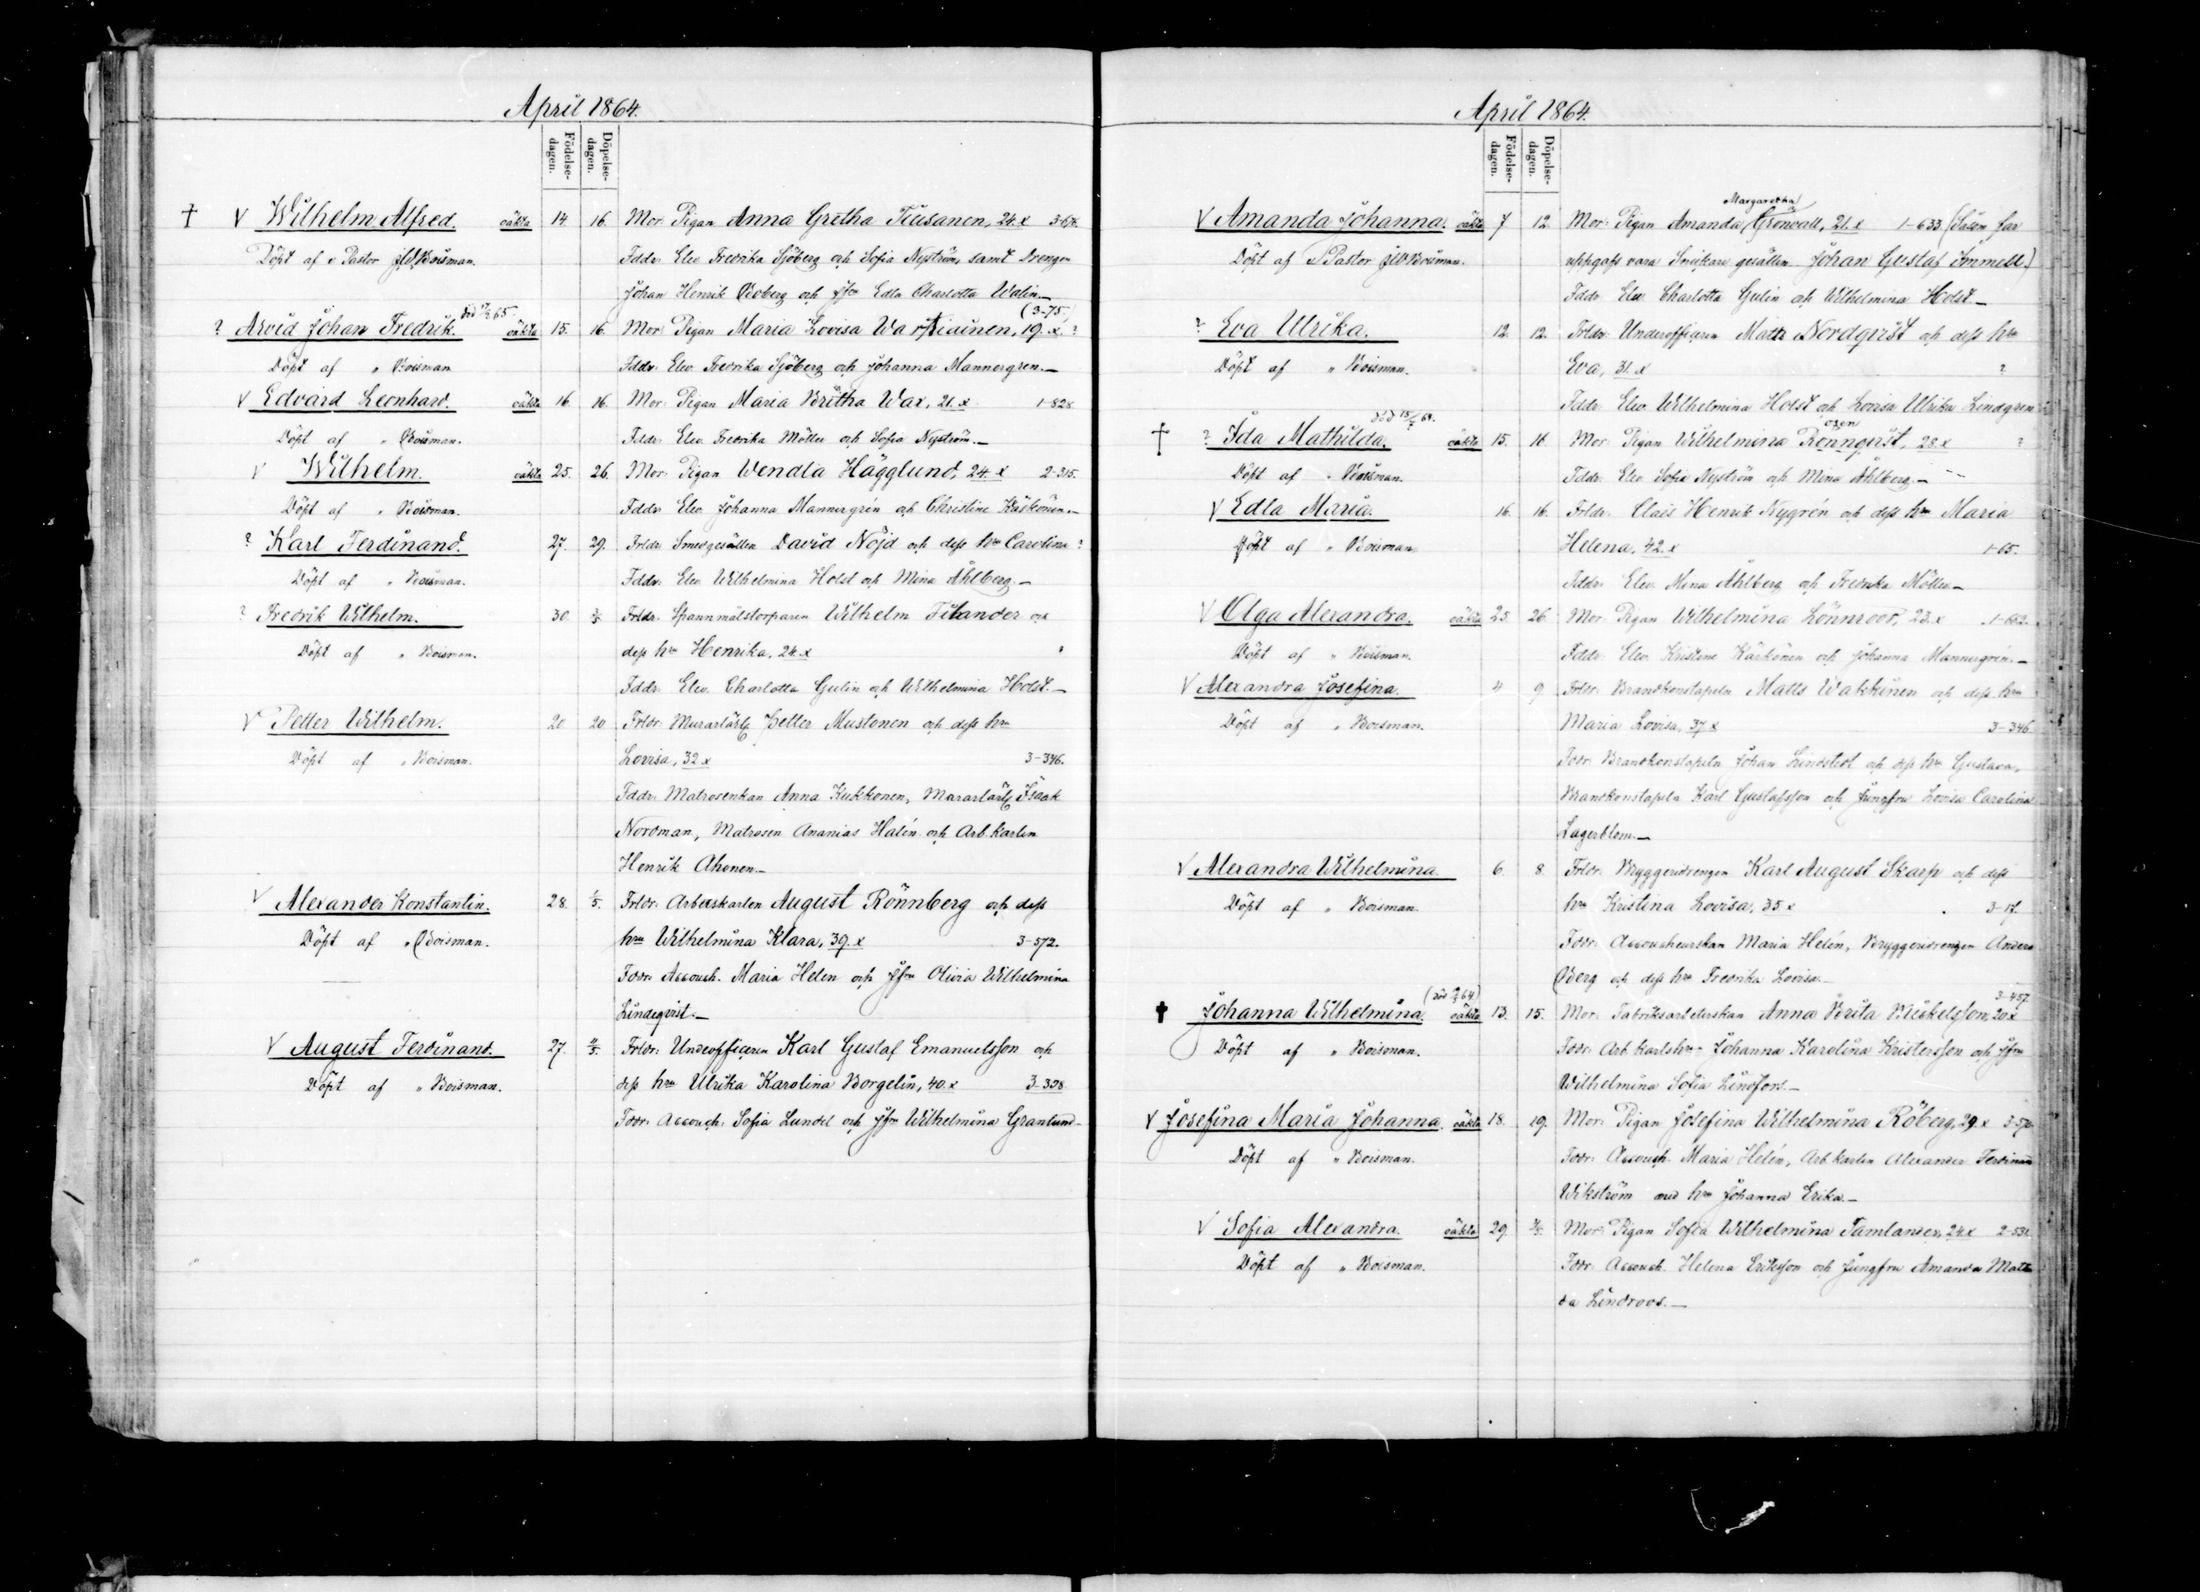 April 1864.
Födelse-dagen.
Döpelse-dagen.
† V Wilhelm Alfred. oäkta 14 16. Mor: Pigan Anna Gretha Tiusanen, 24. x
Döpt af v Pastor Boisman. Fddr. Elev. Fredrika Sjöberg och Sofia Nyström, samt Drengen
Johan Henrik Boberg och Jfru Edla Charlotta Walin.—
? Arvid Johan Fredrik. oäkta 15. 16 Mor: Pigan Maria Lovisa Wartiainen, 19. x ? (3-75)
Döpt af " Boisman Fddr. Elev. Fredrika Sjöberg och Johanna Mannergren.—
V Edvard Leonhard. oäkta 16. 16. Mor: Pigan Maria Britha Wax, 21. x 1-828
Döpt af " Boisman. Fddr. Elev. Fredrika Möller och Sofia Nyström.—
V Wilhelm. oäkta 25. 26. Mor: Pigan Wendla Hägglund, 24. x 2-315.
Döpt af " Boisman. Fddr. Elev. Johanna Mannergrén och Christine Käskönen.—
? Karl Ferdinand. 27. 29. Frldr. Smedgesällen David Nöjd och dess hru Carolina ?
Döpt af " Boisman. Fddr. Elev. Wilhelmina Holst och Mina Åhlberg.—
? Fredrik Wilhelm. 30. 2/5 Frldr. Spannmålstorparen Wilhelm Titander och
Döpt af " Boisman. dess hru Henrika, 24. x
Fddr. Elev. Charlotta Gulin och Wilhelmina Holst.—
V Petter Wilhelm. 20 20 Frldr. Murarlärl. Petter Mustonen och dess hru
Döpt af " Boisman. Lovisa, 32 x 3-346.
Fddr. Matrosenkan Anna Kukkonen, Murarlärl. Isaak
Nordman, Matrosen Ananias Halén och Arb.karlen
Henrik Ahonen.—
V Alexander Konstantin. 28. 1/5. Frldr. Arbetskarlen August Rönnberg och dess
Döpt af " Boisman. hru Wilhelmina Klara, 39. x 3-572.
Fddr. Accouch. Maria Helen och Jfru Olivia Wilhelmina
Lindqvist.—
V August Ferdinand. 27. 4/5. Frldr. Underofficeren Karl Gustaf Emanuelsson och
Döpt af " Boisman. dess hru Ulrika Karolina Borgelin, 40. x 3-398
Fddr. Accouch. Sofia Lundel och Jfru Wilhelmina Granlund.—
April 1864.
Födelse-dagen.
Döpelse-dagen.
Margaretha
V Amanda Johanna. oäkta 7 12. Mor: Pigan Amanda Grönvall, 21. x 1-633 (Såsom far
Döpt af v Pastor Boisman. uppgafs vara Snickare gesällen Johan Gustaf Immell.)
Fddr. Elev. Charlotta Gulin och Wilhelmina Holst—
? Eva Ulrika. 12. 12. Frldr. Underofficeren Matts Nordqvist och dess hru
Döpt af " Boisman. Eva, 31. x ?
Fddr. Elev. Wilhelmina Holst och Lovisa Ulrika Lindgren
† ? Ida Mathilda. oäkta 15. 16 Mor: Pigan Wilhelmina Rönnqvist, 28 x ?
Döpt af " Boisman. Fddr. Elev. Sofia Nyström och Mina Åhlberg.—
V Edla Maria. 16. 16. Frldr. Claës Henrik Nygrén och dess hru Maria
Döpt af " Boisman Helena, 42. x 1-65.
Fddr. Elev. Mina Åhlberg och Fredrika Möller—
V Olga Alexandra. oäkta 25. 26 Mor: Pigan Wilhelmina Lönnroos, 23. x
Döpt af " Boisman. Fddr. Elev. Kristine Käskönen och Johanna Mannergrén.—
V Alexandra Josefina 4 9 Frldr. Brandkonstapeln Matts Wakkinen och dess hru
Döpt af " Boisman. Maria Lovisa, 37 x 3-346.
Fddr. Brandkonstapeln Johan Lindstedt och dess hru Gustava,
Brandkonstapeln Karl Gustafsson och Jungfru Lovisa Carolina
Lagerblom—
V Alexandra Wilhelmina 6. 8. Frldr. Bryggeridrengen Karl August Skarp och dess
Döpt af " Boisman. hru Kristina Lovisa, 35 x 3-17.
Fddr. Accoucheurskan Maria Helén, Bryggeridrengen Anders
Öberg och dess hru Fredrika Lovisa.—
† Johanna Wilhelmina oäkta 13. 15. Mor: Fabriksarbeterskan Anna Brita Mickelsson, 20 x 3-457
Döpt af " Boisman. Fddr. Arb.karlshru Johanna Karolina Kristersson och Jfru
Wilhelmina Sofia Lindfors.—
V Josefina Maria Johanna. oäkta 18. 19. Mor: Pigan Josefina Wilhelmina Röberg, 29. x
Döpt af " Boisman. Fddr. Accouch. Maria Helén, Arb.karlen Alexander Ferdinand
Wikström med hru Johanna Erika.—
V Sofia Alexandra. oäkta 29. 2/5. Mor: Pigan Sofia Wilhelmina Tamlander, 24. x 2-531.
Döpt af " Boisman. Fddr. Accouch. Helena Eriksson och Jungfru Amanda Matil
da Lindroos.—